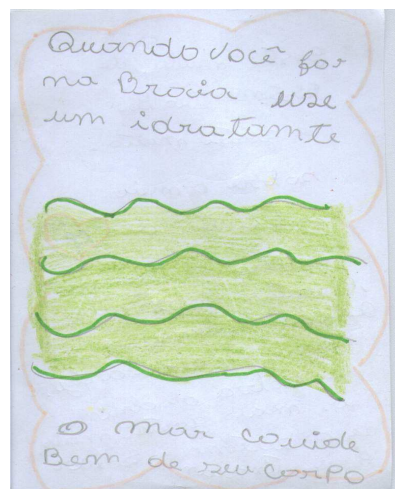 Quando você for
na Brocia use
um idratamte
O mar couide
Bem de seu corpo